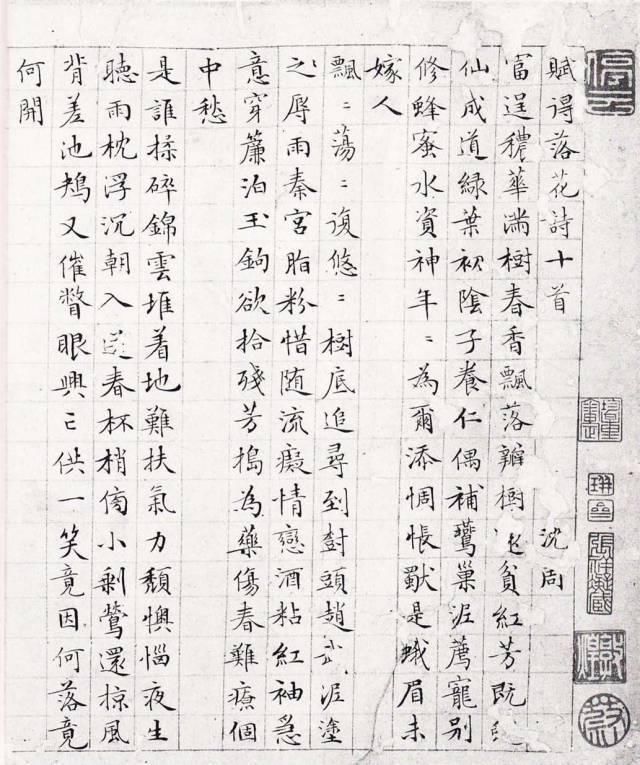 賦得落花詩十首 沈周
富逞穠華滿樹春香飄落瓣樹還貧紅芳既
仙成道綠葉初陰子養仁偶補鶯巢泥薦寵別
修蜂蜜水資神年〻為爾添惆悵獸是蛾眉未
嫁人
飄〻蕩〻復悠〻樹底追尋到樹頭趙武泥塗
辱雨秦宮脂粉惜隨流癡情戀酒粘紅袖急
意穿簾泊玉鉤欲拾殘芳搗為藥傷春難療個
中愁
是誰揉碎錦雲堆着地難扶氣力頹懊惱夜生
聽雨枕浮沉朝入送春杯梢傍小剩鶯還掠風
背差池鳩又催瞥眼興亡供一笑竟因何落竟
何開